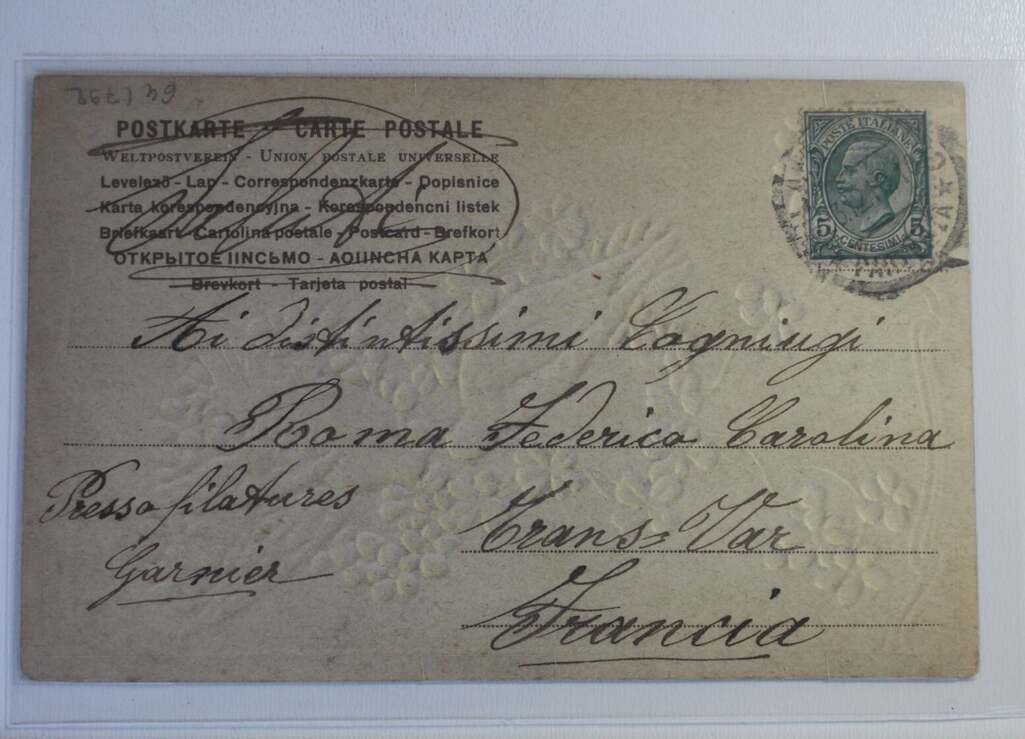 POSTKARTE - CARTE POSTALE
WELTPOSTVEREIN - UNION POSTALE UNIVERSELLE
Levelezö - Lap - Correspondenzkarte - Dopisnice
Karta korespondencyjna - Korespondencni listek
Briefkaart - Cartolina postale - Postcard - Brefkort
ОТКРЫТОЕ IIНСЬМО - AOIINCHA КАРТА
Brevkort - Tarjeta postal
POSTE ITALIANE
5 CENTESIMI 5
Ai distintissimi Cogniugi
Roma Federico Carolina
Presso filatures
Garnier
Trans = Var
Francia